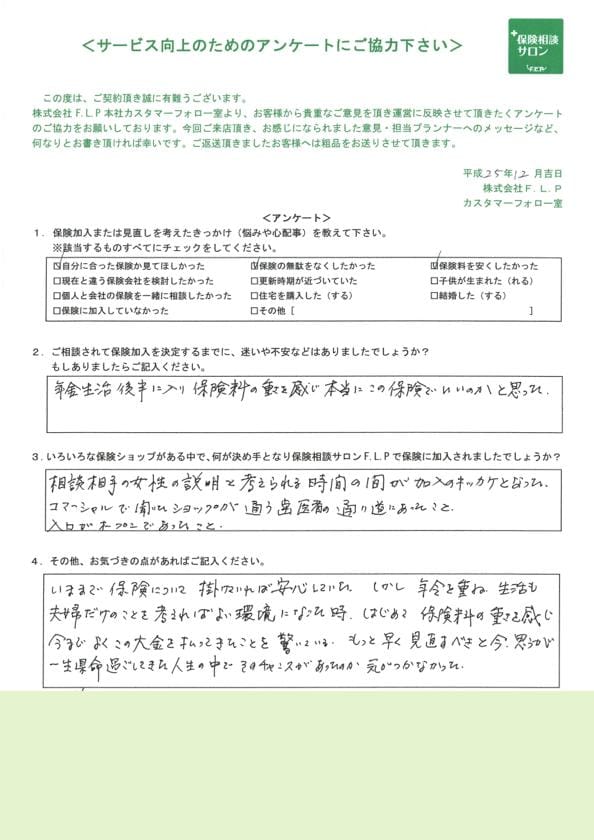 ＜サービス向上のためのアンケートにご協力下さい＞
+保険相談
サロン
F.L.P
この度は、ご契約頂き誠に有難うございます。
株式会社Ｆ.Ｌ.Ｐ本社カスタマーフォロー室より、お客様から貴重なご意見を頂き運営に反映させて頂きたくアンケート
のご協力をお願いしております。今回ご来店頂き、お感じになられました意見・担当プランナーへのメッセージなど、
何なりとお書き頂ければ幸いです。ご返送頂きましたお客様へは粗品をお送りさせて頂きます。
平成25年12月吉日
株式会社Ｆ.Ｌ.Ｐ
カスタマーフォロー室
＜アンケート＞
１．保険加入または見直しを考えたきっかけ（悩みや心配事）を教えて下さい。
※該当するものすべてにチェックをしてください。
☑自分に合った保険か見てほしかった ☑保険の無駄をなくしたかった ☑保険料を安くしたかった
□現在と違う保険会社を検討したかった □更新時期が近づいていた □子供が生まれた（れる）
□個人と会社の保険を一緒に相談したかった □住宅を購入した（する） □結婚した（する）
□保険に加入していなかった □その他［ ］
２．ご相談されて保険加入を決定するまでに、迷いや不安などはありましたでしょうか？
もしありましたらご記入ください。
年金生活後半に入り保険料の重さを感じ本当にこの保険でいいのかと思った.
３.いろいろな保険ショップがある中で、何が決め手となり保険相談サロンＦ.Ｌ.Ｐで保険に加入されましたでしょうか？
相談相手の女性の説明と考えられる時間の間が加入のキッカケとなった.
コマーシャルで聞いたショップが通う歯医者の通り道にあったこと.
入口がオープンであったこと.
４．その他、お気づきの点があればご記入ください。
いままで保険について掛けていれば安心していた. しかし年令を重ね.生活も
夫婦だけのことを考えればよい環境になった時. はじめて保険料の重さを感じ
今までよくこの大金を払ってきたことを驚いている. もっと早く見直すべきと今.思うが
一生県命過ごしてきた人生の中でそのチャンスがあったのか気がつかなかった.